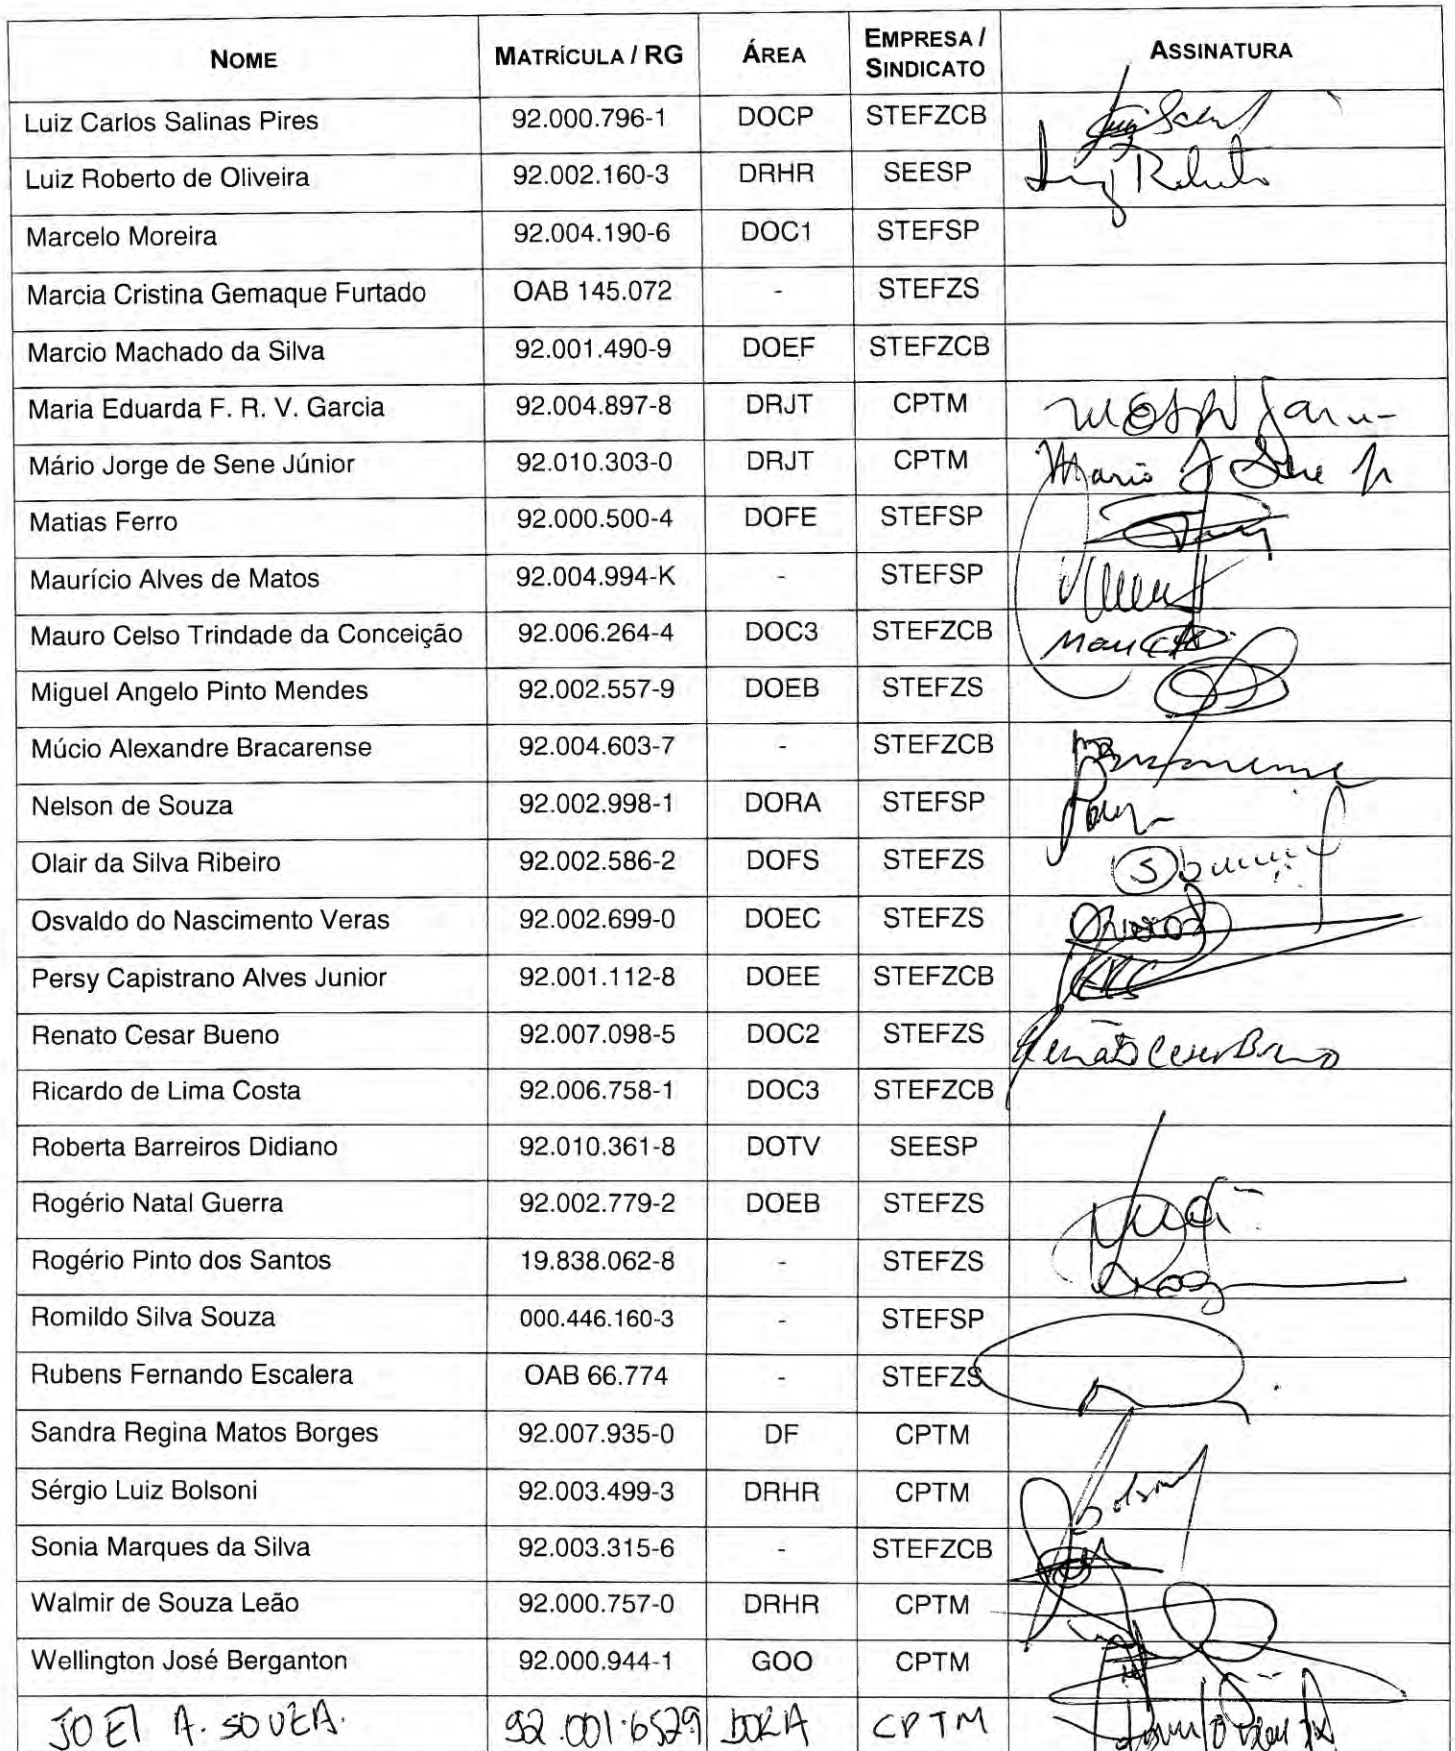 NOME MATRÍCULA / RG ÁREA EMPRESA / SINDICATO ASSINATURA
Luiz Carlos Salinas Pires 92.000.796-1 DOCP STEFZCB
Luiz Roberto de Oliveira 92.002.160-3 DRHR SEESP Luiz Roberto
Marcelo Moreira 92.004.190-6 DOC1 STEFSP
Marcia Cristina Gemaque Furtado OAB 145.072 - STEFZS
Marcio Machado da Silva 92.001.490-9 DOEF STEFZCB
Maria Eduarda F. R. V. Garcia 92.004.897-8 DRJT CPTM
Mário Jorge de Sene Júnior 92.010.303-0 DRJT CPTM Mario J Sene Jr
Matias Ferro 92.000.500-4 DOFE STEFSP
Maurício Alves de Matos 92.004.994-K - STEFSP
Mauro Celso Trindade da Conceição 92.006.264-4 DOC3 STEFZCB
Miguel Angelo Pinto Mendes 92.002.557-9 DOEB STEFZS
Múcio Alexandre Bracarense 92.004.603-7 - STEFZCB
Nelson de Souza 92.002.998-1 DORA STEFSP
Olair da Silva Ribeiro 92.002.586-2 DOFS STEFZS
Osvaldo do Nascimento Veras 92.002.699-0 DOEC STEFZS
Persy Capistrano Alves Junior 92.001.112-8 DOEE STEFZCB
Renato Cesar Bueno 92.007.098-5 DOC2 STEFZS Renato Cesar Bueno
Ricardo de Lima Costa 92.006.758-1 DOC3 STEFZCB
Roberta Barreiros Didiano 92.010.361-8 DOTV SEESP
Rogério Natal Guerra 92.002.779-2 DOEB STEFZS
Rogério Pinto dos Santos 19.838.062-8 - STEFZS
Romildo Silva Souza 000.446.160-3 - STEFSP
Rubens Fernando Escalera OAB 66.774 - STEFZS
Sandra Regina Matos Borges 92.007.935-0 DF CPTM
Sérgio Luiz Bolsoni 92.003.499-3 DRHR CPTM Bolsoni
Sonia Marques da Silva 92.003.315-6 - STEFZCB
Walmir de Souza Leão 92.000.757-0 DRHR CPTM
Wellington José Berganton 92.000.944-1 GOO CPTM
JOEl A. SOUZA. 92.001.6529 DORA CPTM